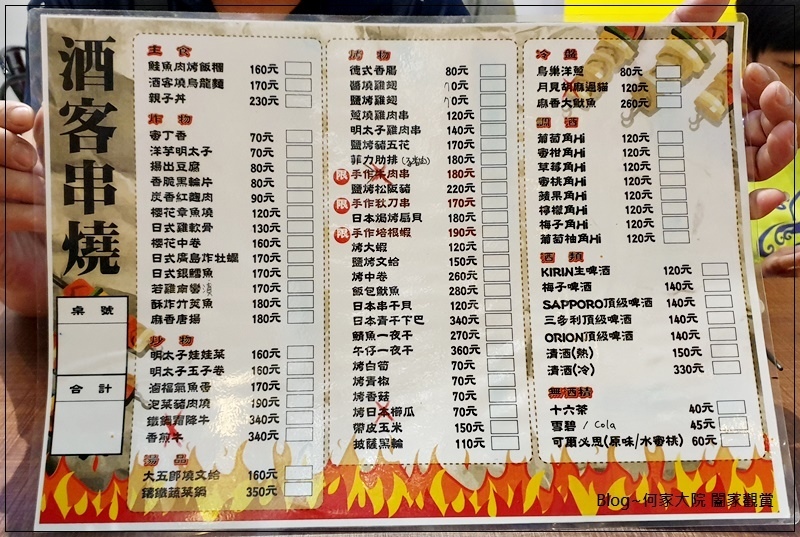 酒客串燒
桌號
合計
主食
鮭魚肉烤飯糰 160元
酒客燒烏龍麵 170元
親子丼 230元
炸物
蜜丁香 70元
洋芋明太子 70元
揚出豆腐 80元
香脆黑輪片 80元
炭香紅麴肉 90元
櫻花章魚燒 120元
日式雞軟骨 130元
櫻花中卷 160元
日式廣島炸牡蠣 170元
日式銀鱈魚 170元
若雞南蠻 170元
酥炸竹筴魚 180元
麻香唐揚 180元
炒物
明太子娃娃菜 160元
明太子玉子卷 160元
滷福氣魚香 170元
泡菜豬肉燒 190元
鐵鍋霜降牛 340元
香煎牛 340元
湯品
大五郎燒文蛤 160元
鑄鐵蔬菜鍋 350元
烤物
德式香腸 80元
醬燒雞翅 0元
鹽烤雞翅 0元
蔥燒雞肉串 120元
明太子雞肉串 140元
鹽烤豬五花 170元
菲力肋排 180元
限 手作牛肉串 180元
鹽烤松阪豬 220元
限 手作秋刀串 170元
日本焗烤扇貝 180元
限 手作培根蝦 190元
烤大蝦 120元
鹽烤文蛤 150元
烤中卷 260元
飯包魷魚 280元
日本串干貝 120元
日本青干下巴 340元
鯖魚一夜干 270元
午仔一夜干 360元
烤白筍 70元
烤青椒 70元
烤香菇 70元
烤日本櫛瓜 70元
帶皮玉米 150元
披薩黑輪 110元
冷盤
烏樂洋蔥 80元
月見胡麻過貓 120元
麻香大魷魚 260元
調酒
葡萄角Hi 120元
蜜柑角Hi 120元
草莓角Hi 120元
蜜桃角Hi 120元
蘋果角Hi 120元
檸檬角Hi 120元
梅子角Hi 120元
葡萄柚角Hi 120元
酒類
KIRIN生啤酒 120元
梅子啤酒 140元
SAPPORO頂級啤酒 140元
三多利頂級啤酒 140元
ORION頂級啤酒 140元
清酒(熱) 150元
清酒(冷) 330元
無酒精
十六茶 40元
雪碧 / Cola 45元
可爾必思(原味/水蜜桃) 60元
Blog~何家大院 闔家觀賞